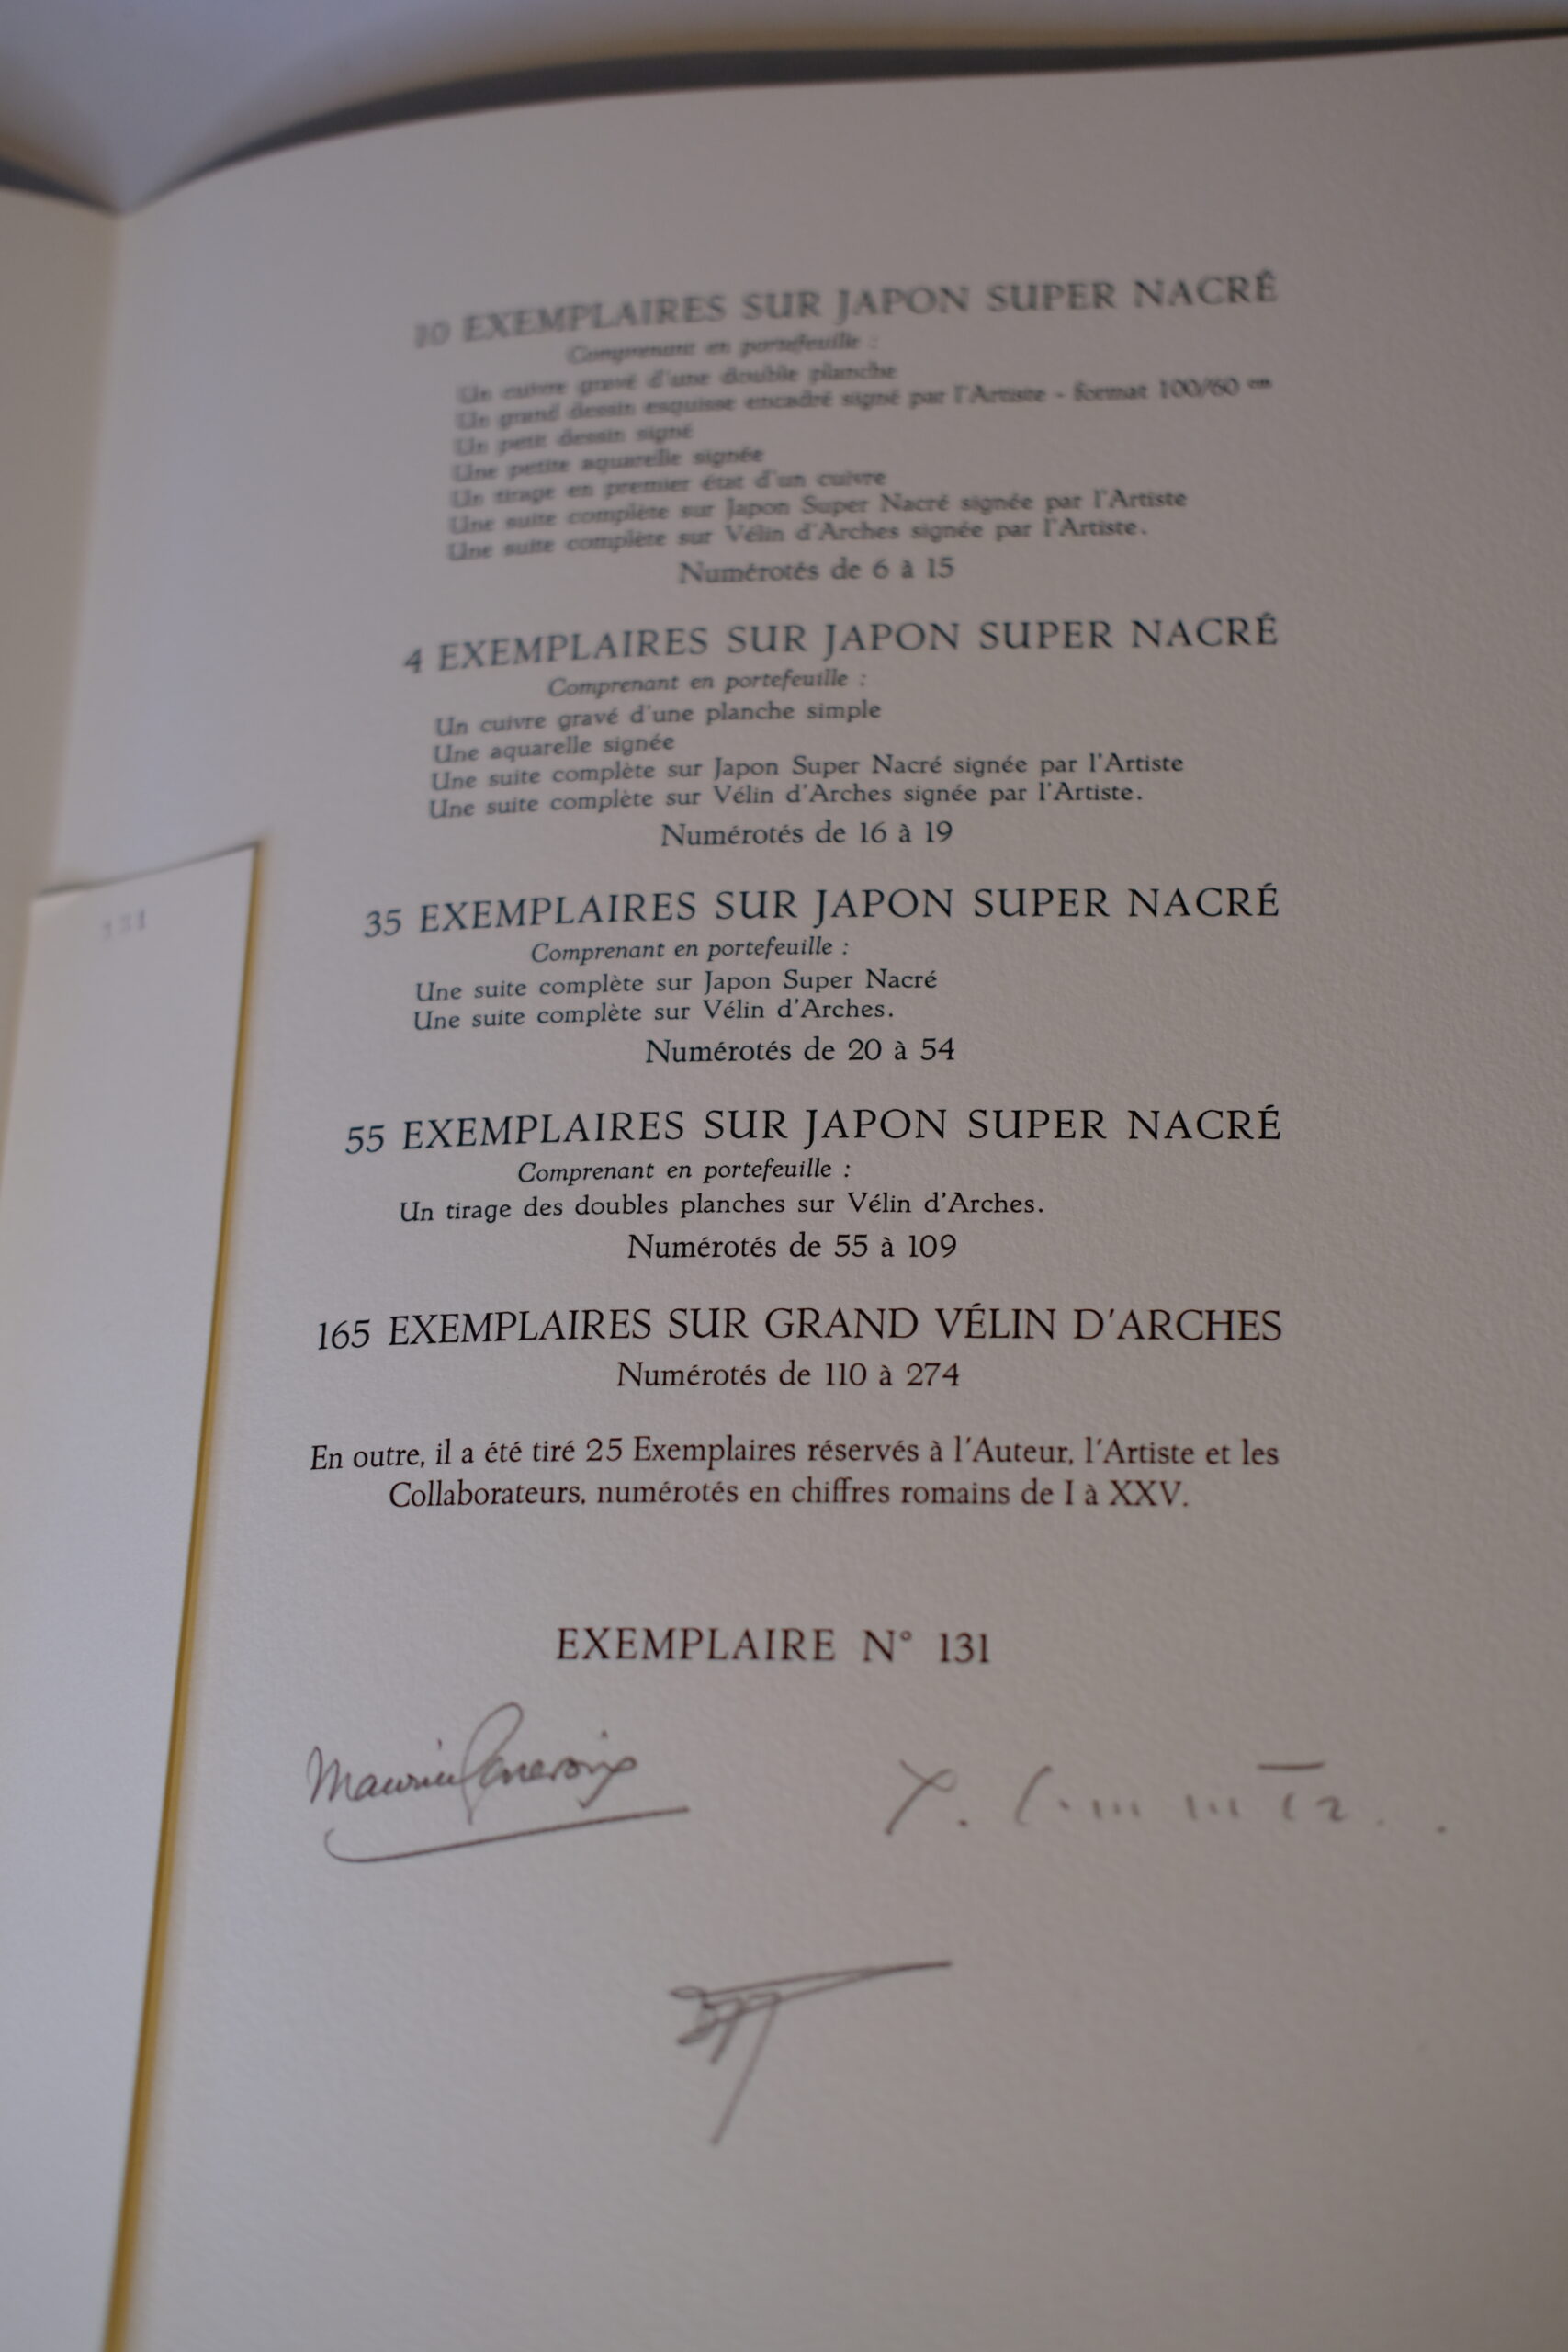 10 EXEMPLAIRES SUR JAPON SUPER NACRÉ
Comprenant en portefeuille :
Un cuivre gravé d'une double planche
Un grand dessin esquisse encadré signé par l'Artiste - format 100/60 cm
Un petit dessin signé
Une petite aquarelle signée
Un tirage en premier état d'un cuivre
Une suite complète sur Japon Super Nacré signée par l'Artiste
Une suite complète sur Vélin d'Arches signée par l'Artiste.
Numérotés de 6 à 15
4 EXEMPLAIRES SUR JAPON SUPER NACRÉ
Comprenant en portefeuille :
Un cuivre gravé d'une planche simple
Une aquarelle signée
Une suite complète sur Japon Super Nacré signée par l'Artiste
Une suite complète sur Vélin d'Arches signée par l'Artiste.
Numérotés de 16 à 19
35 EXEMPLAIRES SUR JAPON SUPER NACRÉ
Comprenant en portefeuille :
Une suite complète sur Japon Super Nacré
Une suite complète sur Vélin d'Arches.
Numérotés de 20 à 54
55 EXEMPLAIRES SUR JAPON SUPER NACRÉ
Comprenant en portefeuille :
Un tirage des doubles planches sur Vélin d'Arches.
Numérotés de 55 à 109
165 EXEMPLAIRES SUR GRAND VÉLIN D'ARCHES
Numérotés de 110 à 274
En outre, il a été tiré 25 Exemplaires réservés à l'Auteur, l'Artiste et les
Collaborateurs, numérotés en chiffres romains de I à XXV.
131
EXEMPLAIRE N° 131
Maurice Genevoix